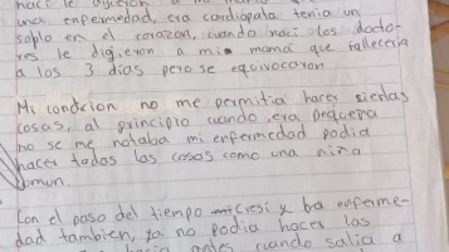 naci le dijeron a mi
una enfermedad, era cardiópata tenia un
soplo en el corazon, cuando naci los docto-
res le digieron a mi mamá que falleceria
a los 3 dias pero se equivocaron
Mi condcion no me permitia hacer ciertas
cosas, al principio cuando era pequeña
no se me notaba mi enfermedad podia
hacer todas las cosas como una niña
comun.
Con el paso del tiempo cresi y la enferme-
dad tambien, ya no podia hacer las
antes cuando salia a